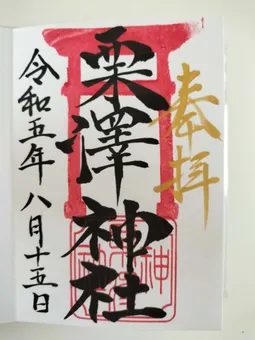 奉拝
栗澤神社
令和五年八月十五日